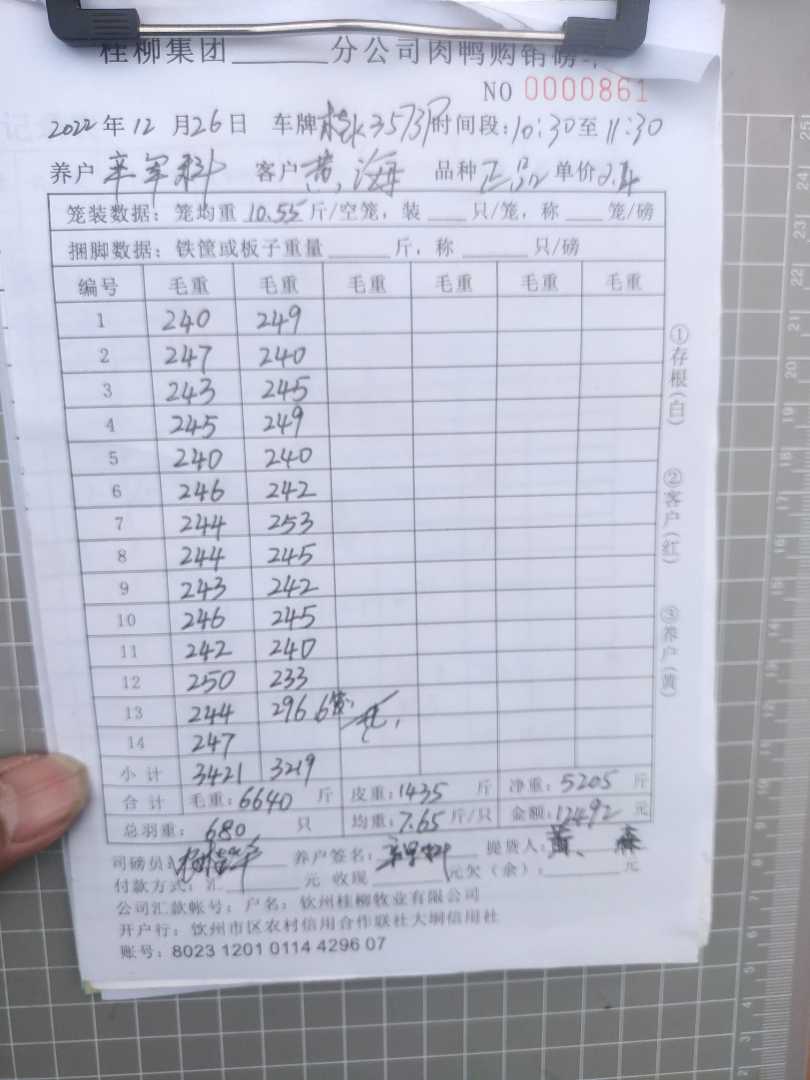 桂柳集团______分公司肉鸭购销磅
NO 0000861
2022年12月26日 车牌桂K3573 时间段:10:30至11:30
养户 辛军科 客户 黄海 品种 正品 单价 2.4
笼装数据: 笼均重 10.55 斤/空笼, 装 ___ 只/笼, 称 ___ 笼/磅
捆脚数据: 铁筐或板子重量 _____ 斤, 称 _____ 只/磅
编号 毛重 毛重 毛重 毛重 毛重 毛重
1 240 249
2 247 240
3 243 245
4 245 249
5 240 240
6 246 242
7 244 253
8 244 245
9 243 242
10 246 245
11 242 240
12 250 233
13 244 296 6笼
14 247
小计 3421 3219
合计 毛重: 6640 斤 皮重: 1435 斤 净重: 5205 斤
总羽重: 680 只 均重: 7.65 斤/只 金额: 12492 元
司磅员: 养户签名: 辛军科 提货人: 黄
付款方式: 汇 ______ 元 收现 ______ 元欠(余): ______ 元
公司汇款帐号: 户名: 钦州桂柳牧业有限公司
开户行: 钦州市区农村信用合作联社大垌信用社
账号: 8023 1201 0114 4296 07
①存根(白)
②客户(红)
③养户(黄)